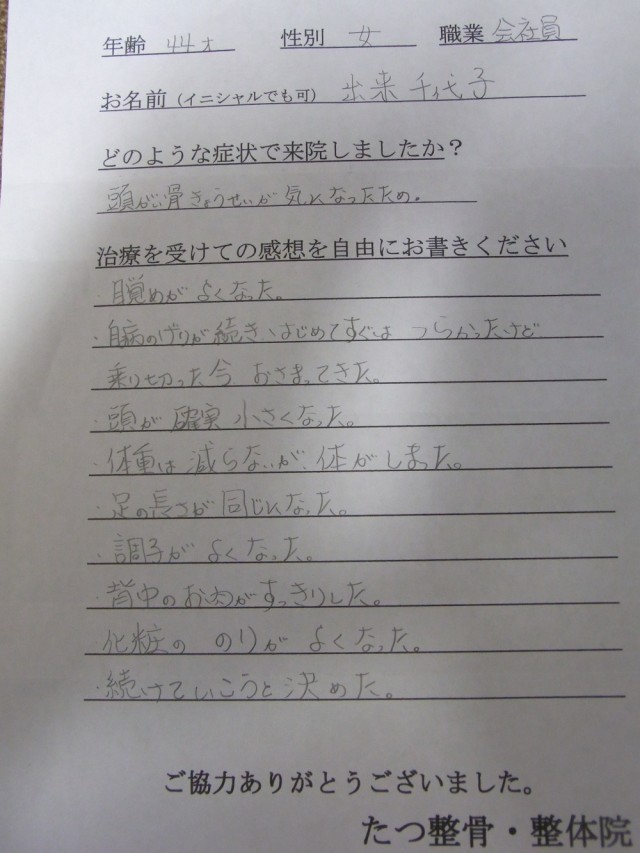 年齢 44才 性別 女 職業 会社員
お名前（イニシャルでも可） 出来千代子
どのような症状で来院しましたか？
頭がい骨きょうせいが気になったため。
治療を受けての感想を自由にお書きください
・目覚めがよくなった。
・自病のげりが続き、はじめてすぐは つらかったけど
乗り切った今 おさまってきた。
・頭が確実小さくなった。
・体重は減らないが、体がしまった。
・足の長さが同じになった。
・調子がよくなった。
・背中のお肉がすっきりした。
・化粧の のりが よくなった。
・続けていこうと決めた。
ご協力ありがとうございました。
たつ整骨・整体院